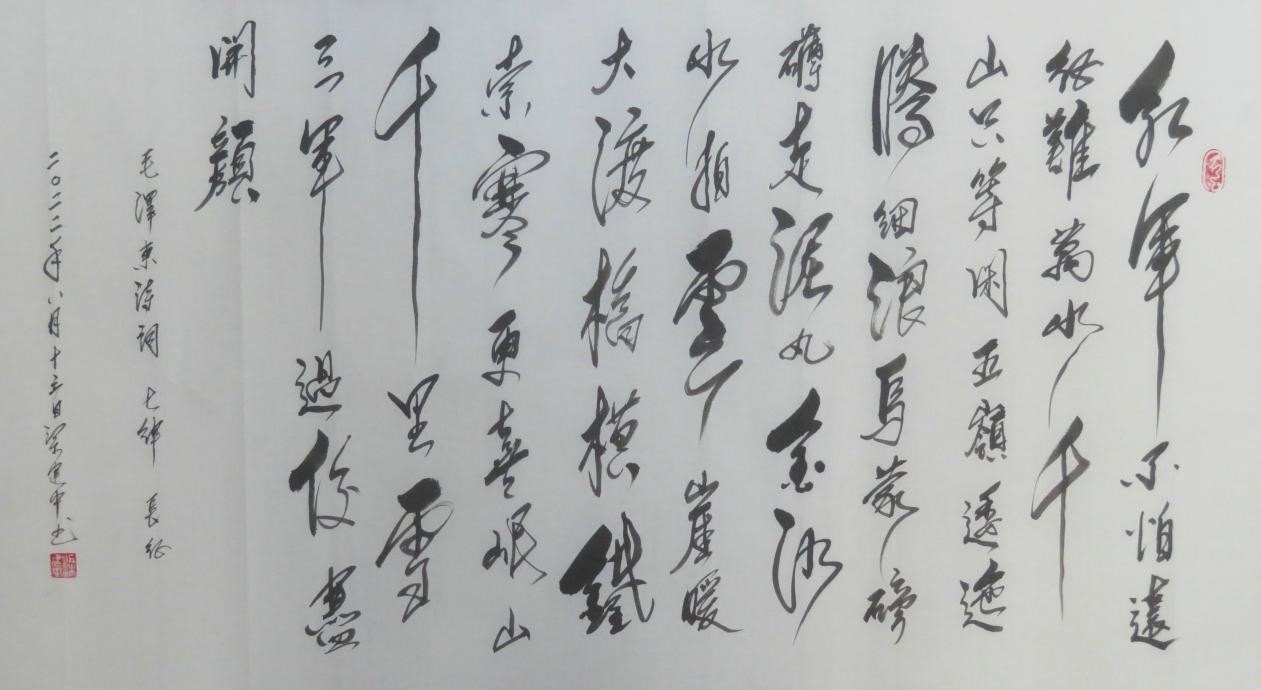 红军不怕遠
征難萬水千
山只等闲五嶺逶迤
騰细浪烏蒙磅
礴走泥丸金沙
水拍雲崖暖
大渡橋橫鐵
索寒更喜岷山
千里雪
三军過後盡
開顔
毛澤東詩詞 七律 長征
二〇二二年八月十三日梁建中书